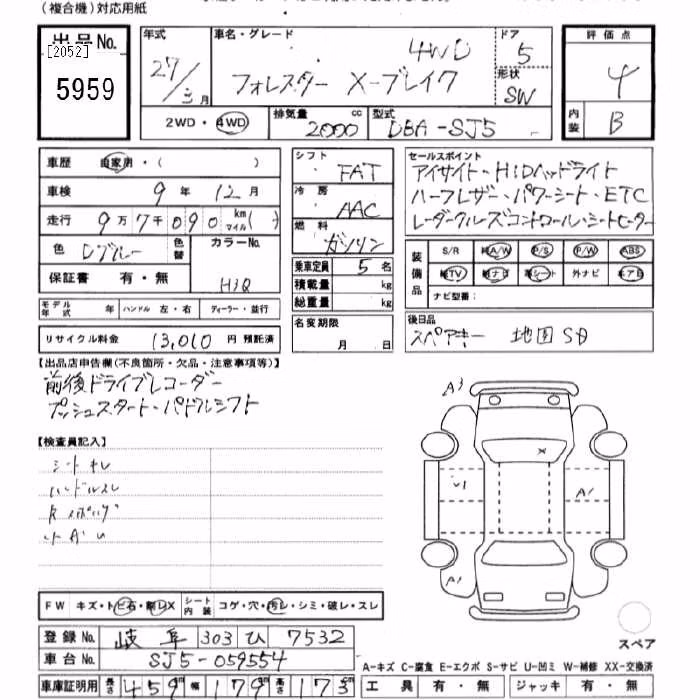 (複合機)対応用紙
出品No.
[2052]
5959
年式
27/3月
車名・グレード
4WD
フォレスター X-ブレイク
ドア
5
形状
SW
評価点
4
内装
B
2WD・4WD
排気量
2000 cc
型式
DBA-SJ5
車歴 自家用・( )
車検 9年12月
走行 9万7千090 km マイル( )
色 Dブルー 色替
カラーNo.
H3Q
保証書 有・無
モデル年式 年 ハンドル 左・右 ディーラー・並行
リサイクル料金 13,010 円 預託済
シフト
FAT
冷房
AAC
燃料
ガソリン
乗車定員 5 名
積載量 kg
総重量 kg
名変期限
月 日
セールスポイント
アイサイト・HIDヘッドライト
ハーフレザー・パワーシート・ETC
レーダークルーズコントロール・シートヒーター
装備品
S/R 純A/W P/S P/W ABS
純TV 純ナビ 革シート 外ナビ エアB
ナビ型番:
後日品
スペアキー 地図SD
【出品店申告欄(不良箇所・欠品・注意事項等)】
前後ドライブレコーダー
プッシュスタート・パドルシフト
【検査員記入】
シートキレ
ハンドルスレ
A3
X
A1
A1
FW キズ・トビ石・刺しX シート内装 コゲ・穴・汚レ・シミ・破レ・スレ
スペア
登録No. 岐阜 303 ひ 7532
車台No. SJ5-059554
A-キズ C-腐食 E-エクボ S-サビ U-凹ミ W-補修 XX-交換済
車庫証明用 長さ 459 cm 幅 179 cm 高さ 173 cm
工具 有・無 ジャッキ 有・無